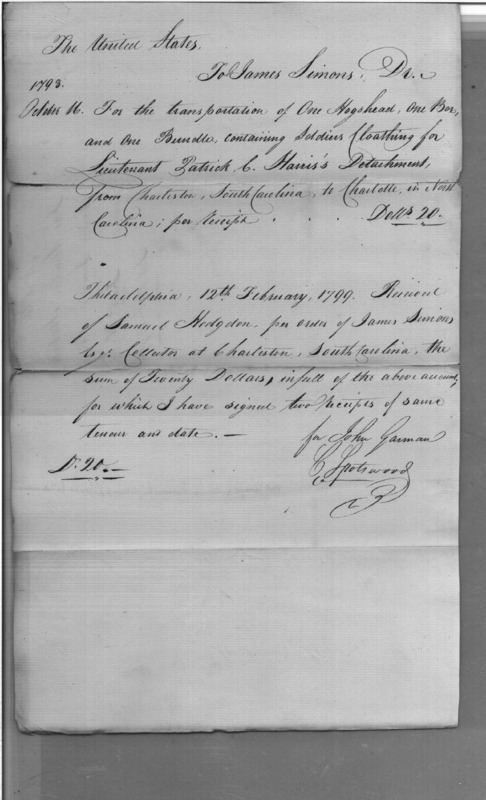 The United States,
To James Simons, Dr.
1798.
October 16. For the transportation of One Hogshead, One Box,
and One Bundle, containing Soldiers Cloathing for
Lieutenant Patrick C. Harris's Detachment,
from Charleston, South Carolina, to Charlotte, in North
Carolina; per Receipt . . . Dolls. 20.
Philadelphia, 12th February, 1799. Received
of Samuel Hodgdon, per order of James Simons
Esqr. Collector at Charleston, South Carolina, the
sum of Twenty Dollars, in full of the above account,
for which I have signed two Receipts of same
tenor and date. —
for John Garman
D. 20. —
C. Spotswood